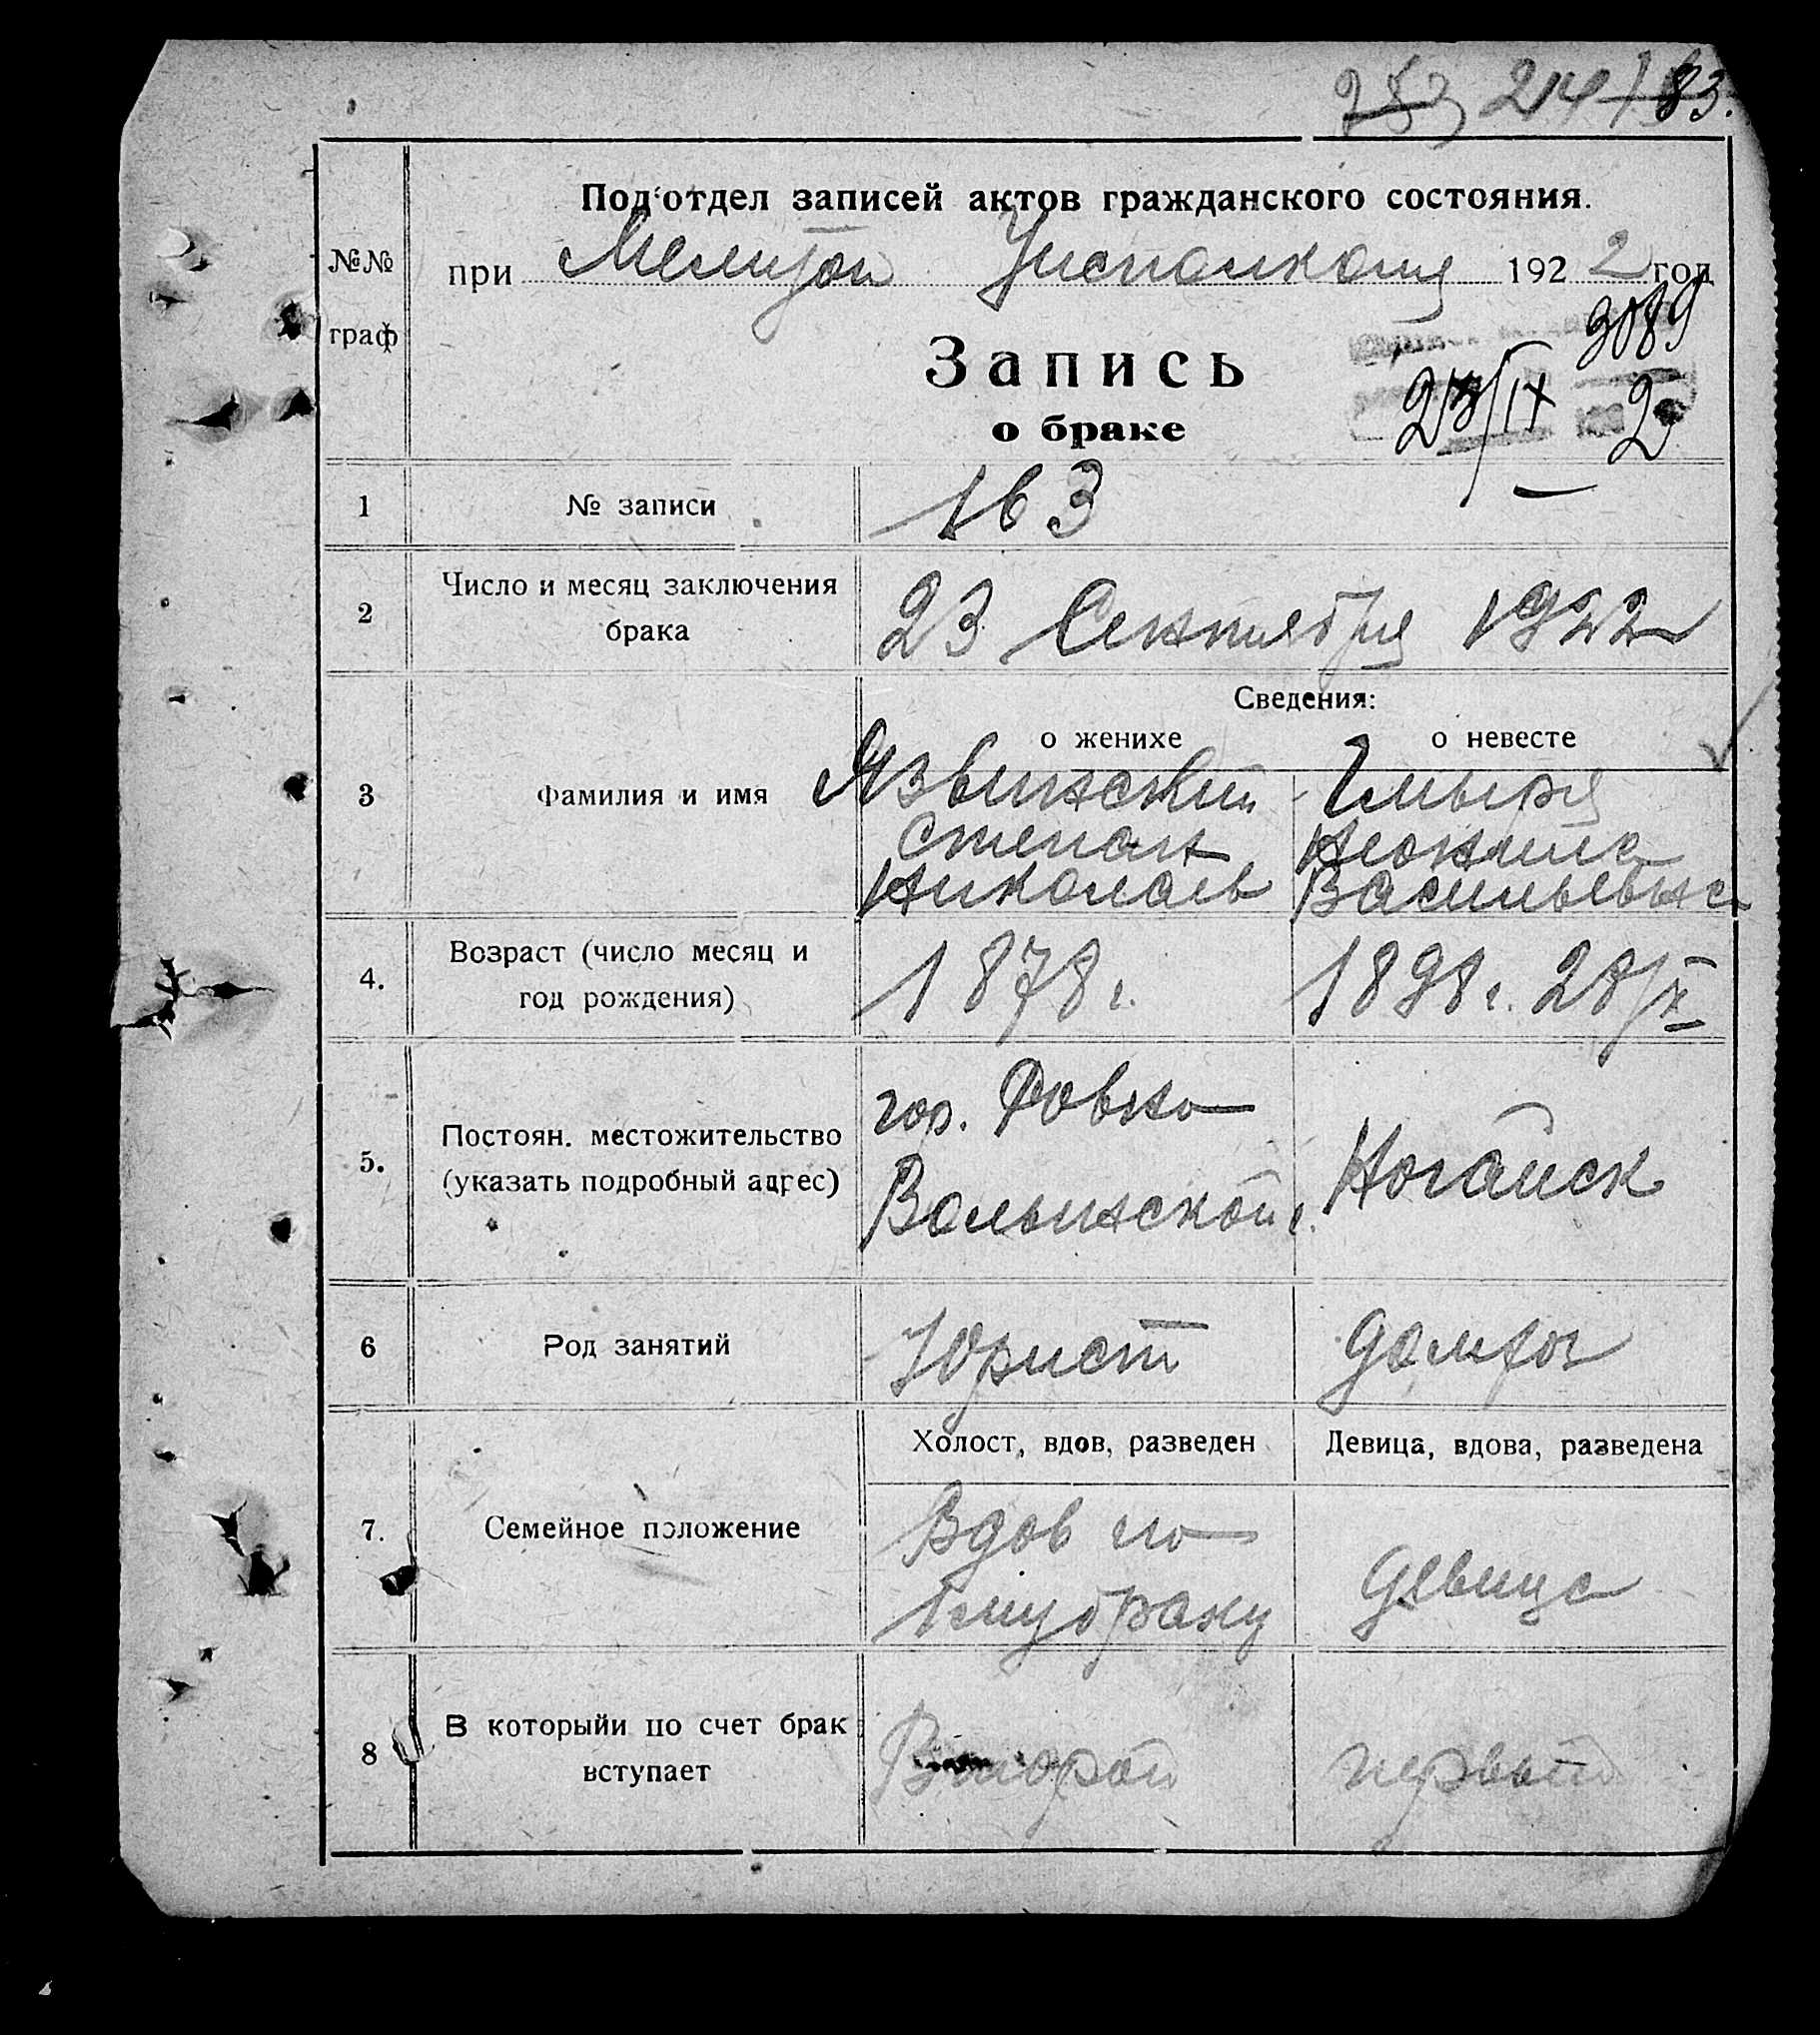 214 83.
Под'отдел записей актов гражданского состояния.
№№
граф
при Мелитоп Уисполкома 1922 год
3089
Запись
23/IX 2
о браке
1 № записи 163
2 Число и месяц заключения брака 23 Сентября 1922
Сведения:
о женихе о невесте
3 Фамилия и имя Язвинский Гмыря
Степан Неонила
Николаев Васильевна
4. Возраст (число месяц и
год рождения) 1878 г. 1898 г. 28/X
5. Постоян. местожительство
(указать подробный адрес)
гор. Ровно
Волынской г. Ногайск
6 Род занятий Юрист домхоз
Холост, вдов, разведен Девица, вдова, разведена
7. Семейное положение Вдов по
1му браку Девица
8 В которыйи по счет брак
вступает Второй первый